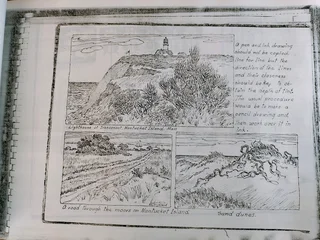 A pen and ink drawing
would not be
line for line but the
direction of the lines
and their closeness
would be key to ob-
tain the depth of tint.
The usual procedure
would be to make a
pencil drawing and
then work over it in
ink.
Lighthouse at Siasconset Nantucket Island, Mass
A road through the moors on Nantucket Island.
Sand dunes.